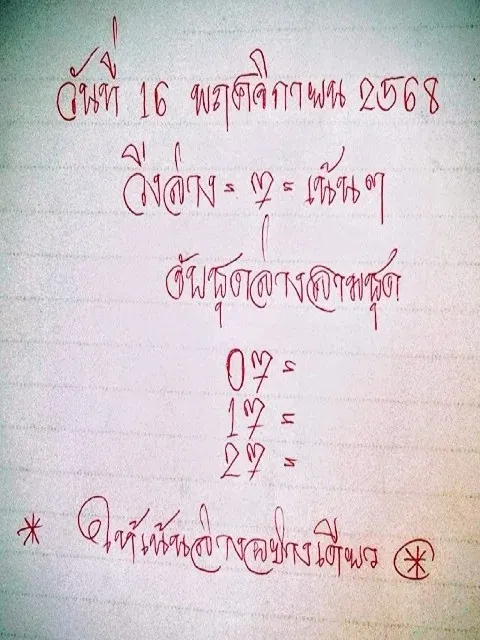 วันที่ 16 พฤศจิกายน 2568
วิ่งล่าง = 7 = เน้นๆ
จับชุดล่างสามชุด
07 =
17 =
27 =
* ให้เน้นล่างอย่างเดียว *